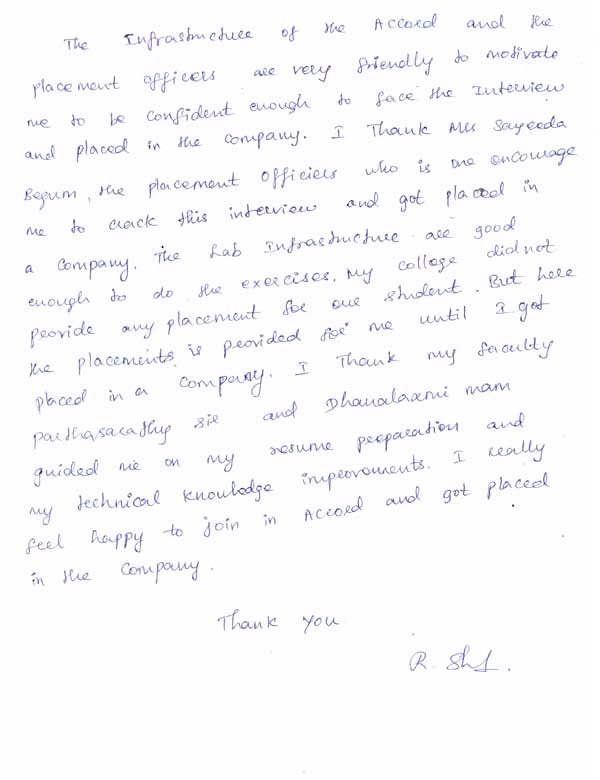 The Infrastructure of the Accord and the
placement officers are very friendly to motivate
me to be confident enough to face the Interview
and placed in the company. I Thank Mrs Sayeeda
Begum, the placement officiers who is one encourage
me to crack this interview and got placed in
a company. The Lab Infrastructure are good
enough to do the exercises. My college did not
peovide any placement for our student. But here
the placements is peovided for me until I got
placed in a company. I Thank my faculty
parthasarathy sir and Dhanalaxmi mam
guided me on my resume preparation and
my technical knowledge improvements. I really
feel happy to join in Accord and got placed
in the company.
Thank you
R.